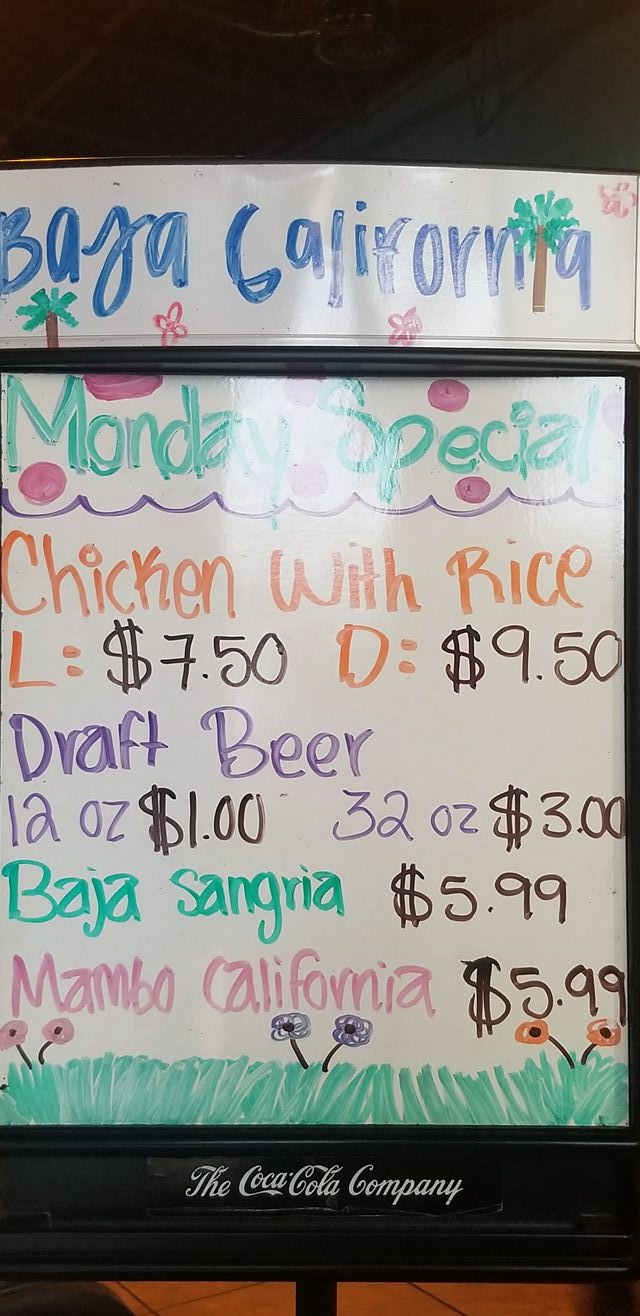 Baja California
Monday Special
Chicken With Rice
L: $7.50 D: $9.50
Draft Beer
12 oz $1.00 32 oz $3.00
Baja Sangria $5.99
Mambo California $5.99
The Coca-Cola Company